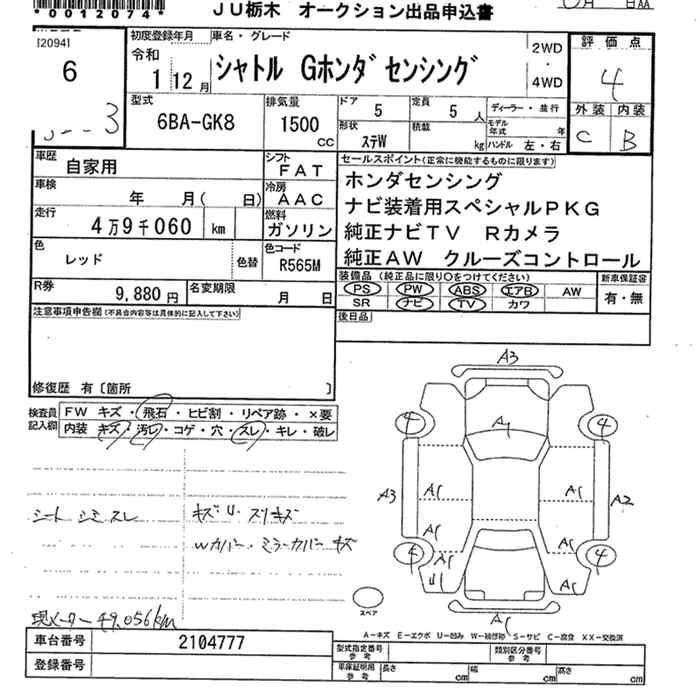 *0012074*
JU栃木 オークション出品申込書
月 日AA
[2094]
6
3
初度登録年月 車名・グレード
令和
1 12月
シャトル Gホンダセンシング
2WD
・
4WD
評価点
4
外装 内装
C B
型式
6BA-GK8
排気量
1500
cc
ドア
5
定員
5 人
ディーラー・並行
モデル年式 年
形状
ステW
積載
kg
ハンドル 左・右
車歴
自家用
シフト
FAT
車検
年 月( 日)
冷房
AAC
走行
4万9千060 km
燃料
ガソリン
色
レッド
色替
色コード
R565M
R券
9,880円
名変期限
月 日
セールスポイント(正常に機能するものに限ります)
ホンダセンシング
ナビ装着用スペシャルPKG
純正ナビTV Rカメラ
純正AW クルーズコントロール
装備品(純正品に限り○をつけてください)
新車保証書
PS PW ABS エアB AW
SR ナビ TV カワ
有・無
後日品
注意事項申告欄(不具合内容等は具体的に記入して下さい)
修復歴 有〔箇所 〕
検査員
記入欄
FW キズ・飛石・ヒビ割・リペア跡・×要
内装 キズ・汚レ・コゲ・穴・スレ・キレ・破レ
シート シミ スレ
キズU・スリキズ
Wカバー・ミラーカバー キズ
現メーター 49,056km
A3
4 4
A1
A3 A1 A1 A2
A1 A1
4 4
A1
U1
A1
A1
スペア
A-キズ E-エクボ U-凹み W-補修跡 S-サビ C-腐食 XX-交換済
車台番号 2104777
登録番号
型式指定番号
参考
類別区分番号
参考
車庫証明用
参考
長さ cm
幅 cm
高さ cm